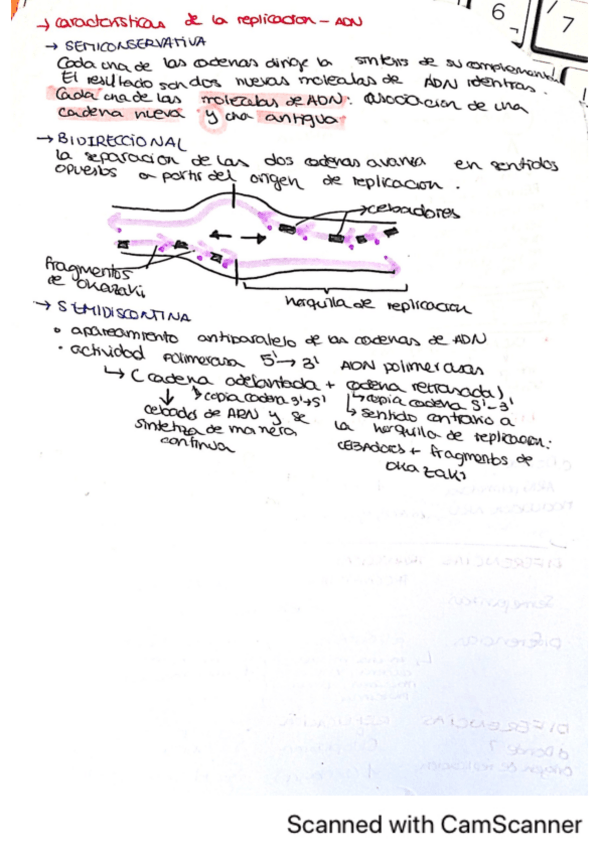 → características de la replicacion - ADN
→ SEMICONSERVATIVA
Cada una de las cadenas dirige la síntesis de su complementaria.
El resultado son dos nuevas moleculas de ADN identicas.
Cada una de las moleculas de ADN: asociacion de una
cadena nueva y una antigua
→ BIDIRECCIONAL
la separacion de las dos cadenas avanza en sentidos
opuestos a partir del origen de replicacion.
→ cebadores
fragmentos
de OKazaki
horquilla de replicacion
→ SEMIDISCONTINA
• apareamiento antiparalelo de las cadenas de ADN
• actividad polimerasa 5'→3' ADN polimerasas
↳ (cadena adelantada + cadena retrasada)
↳ copia cadena 3'→5' ↳ copia cadena 5'-3'
cebador de ARN y se
sintetiza de manera
continua
↳ sentido contrario a
la horquilla de replicacion:
CEBADORES + fragmentos de
OKAZAKI
6
7
Scanned with CamScanner